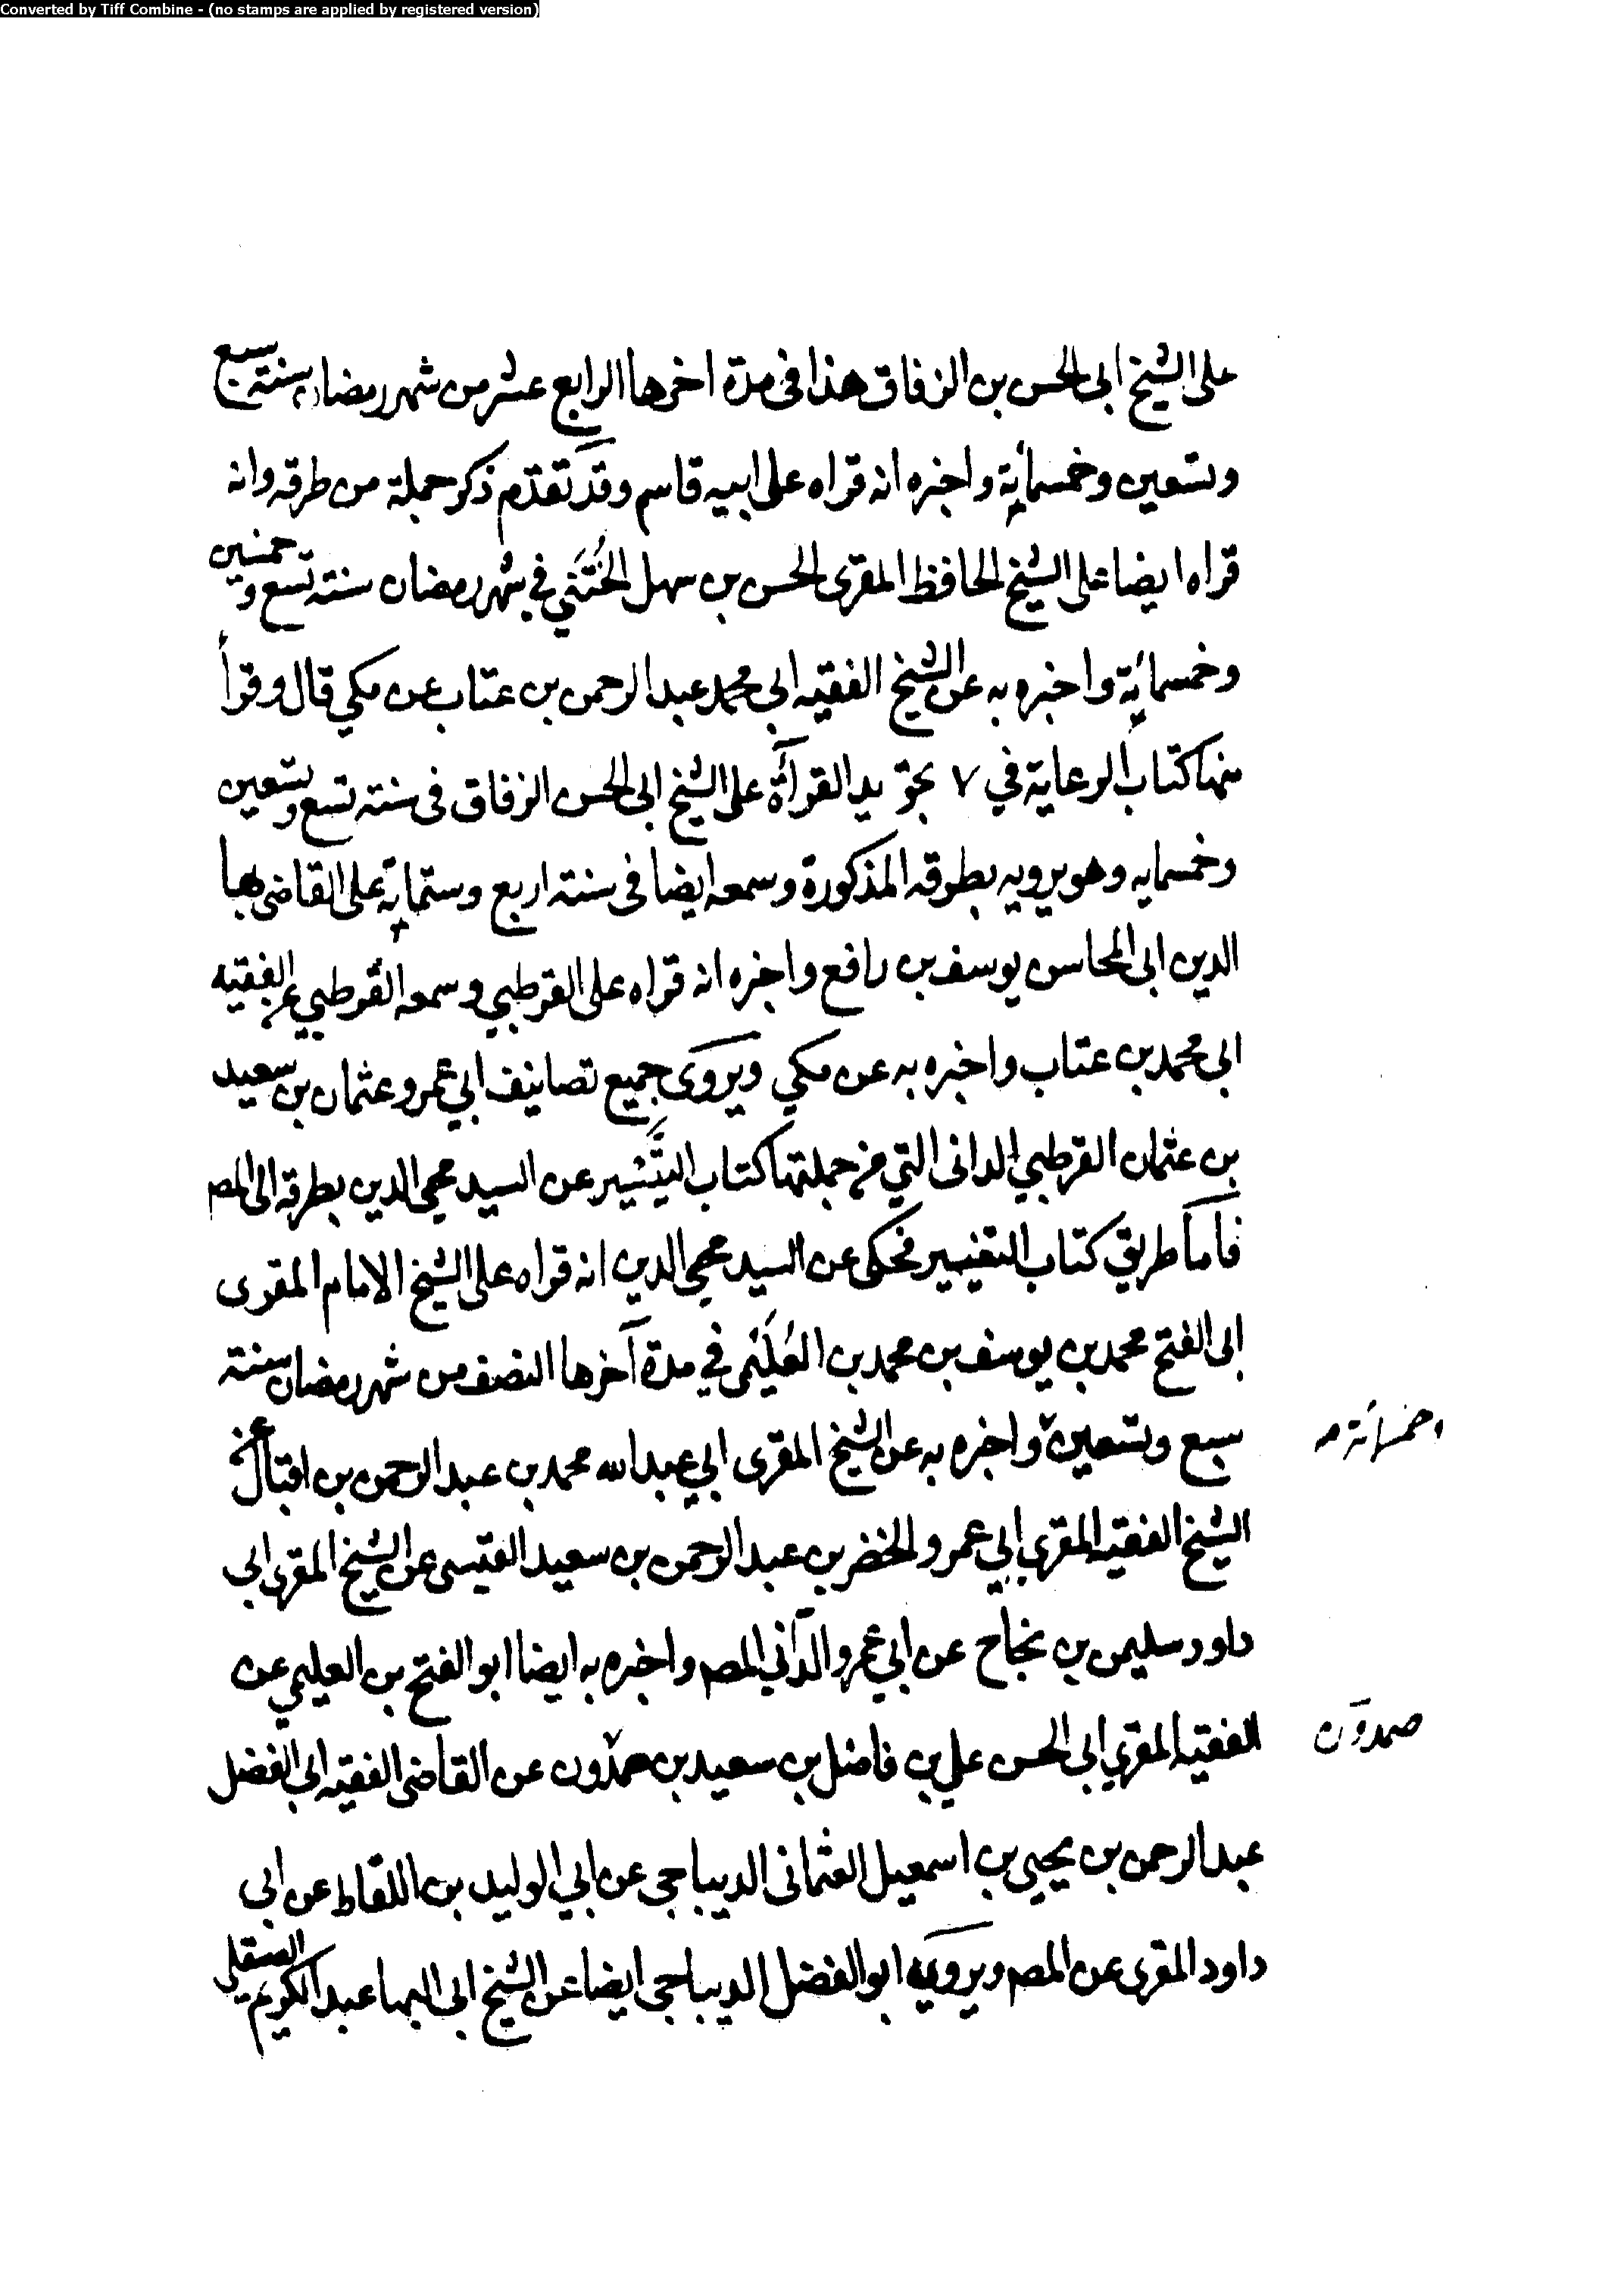 Converted by Tiff Combine - (no stamps are applied by registered version)
على الشيخ ابى الحسن بن الزقاق هذا فى مدة اخرها الرابع عشر من شهر رمضان سنة سبع
وتسعين وخمسمائة واخبره انه قراه على ابيه قاسم وقد تقدم ذكر جملة من طرقه وانه
قراه ايضا على الشيخ الحافظ المقرى الحسن بن سهل الخُشَني في شهر رمضان سنة تسع وخمسين
وخمسمائة واخبره به عن الشيخ الفقيه ابي محمد عبد الرحمن بن عتاب عن مكي قال وقرأ
منها كتاب الرعاية في ٧ تجويد القرآة على الشيخ ابى الحسن الزقاق فى سنة تسع وتسعين
وخمسمايه وهو يرويه بطرقه المذكورة وسمعه ايضا فى سنة اربع وستماية على القاضى بها
الدين ابى المحاسن يوسف بن رافع واخبره انه قراه على القرطبي وسمعه القرطبي عن الفقيه
ابي محمد بن عتاب واخبره به عن مكي ويروى جميع تصانيف ابي عمرو عثمان بن سعيد
بن عثمان القرطبي الدانى التي من جملتها كتاب التيسير عن السيد محيى الدين بطرقه الى المص
فاما طريق كتاب التفسير فحكى عن السيد محيى الدين انه قراه على الشيخ الامام المقرى
ابى الفتح محمد بن يوسف بن محمد بن العُلَيمى في مدة آخرها النصف من شهر رمضان سنة
سبع وتسعين واخبره به عن الشيخ المقرى ابي عبد الله محمد بن عبد الرحمن بن اقبال عن
وخمسمائة صح
الشيخ الفقيه المقرى ابي عمرو الخضر بن عبد الرحمن بن سعيد القيسى عن الشيخ المقرى ابى
داود سليمن بن نجاح عن ابي عمرو الدّاني المص واخبره به ايضا ابو الفتح بن العليمي عن
الفقيه المقري ابى الحسن علي بن فاضل بن سعيد بن حمدون عن القاضى الفقيه ابى الفضل
صمدون
عبد الرحمن بن يحيى بن اسمعيل العثمانى الديباجى عن ابي الوليد بن اللقاط عن ابى
داود المقرى عن المص ويرويه ابو الفضل الديباجى ايضا عن الشيخ ابى البها عبد الكريم الصقلي